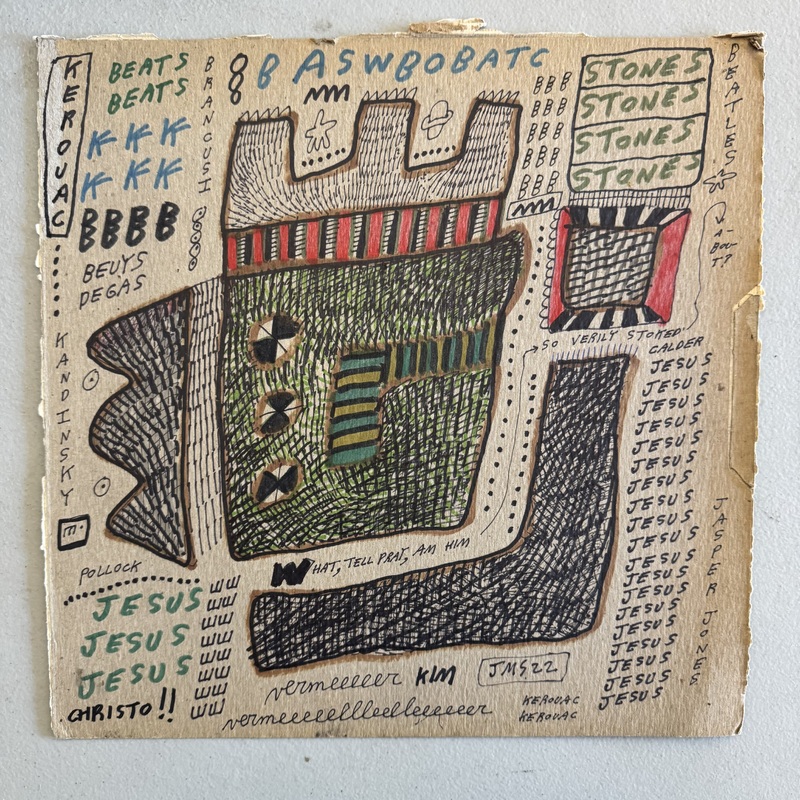 KEROUAC
BEATS
BEATS
K K K
K K K
BBBB
BEUYS
DEGAS
BRANCUSI
KANDINSKY
m.
POLLOCK
JESUS
JESUS
JESUS
CHRISTO!!
B ASWBOBATC
BBB
BBB
BBB
BBB
BBB
STONES
STONES
STONES
STONES
BEATLES
V A-BOUT?
SO VERILY STOKED
CALDER
JESUS
JESUS
JESUS
JESUS
JESUS
JESUS
JESUS
JESUS
JESUS
JESUS
JESUS
JESUS
JESUS
JESUS
JESUS
JESUS
JESUS
JESUS
JESUS
JASPER JONES
WHAT, TELL PRAT, AM HIM
vermeeeeer KIM
JMS22
vermeeeeellleelleeeeeer
KEROUAC
KEROUAC